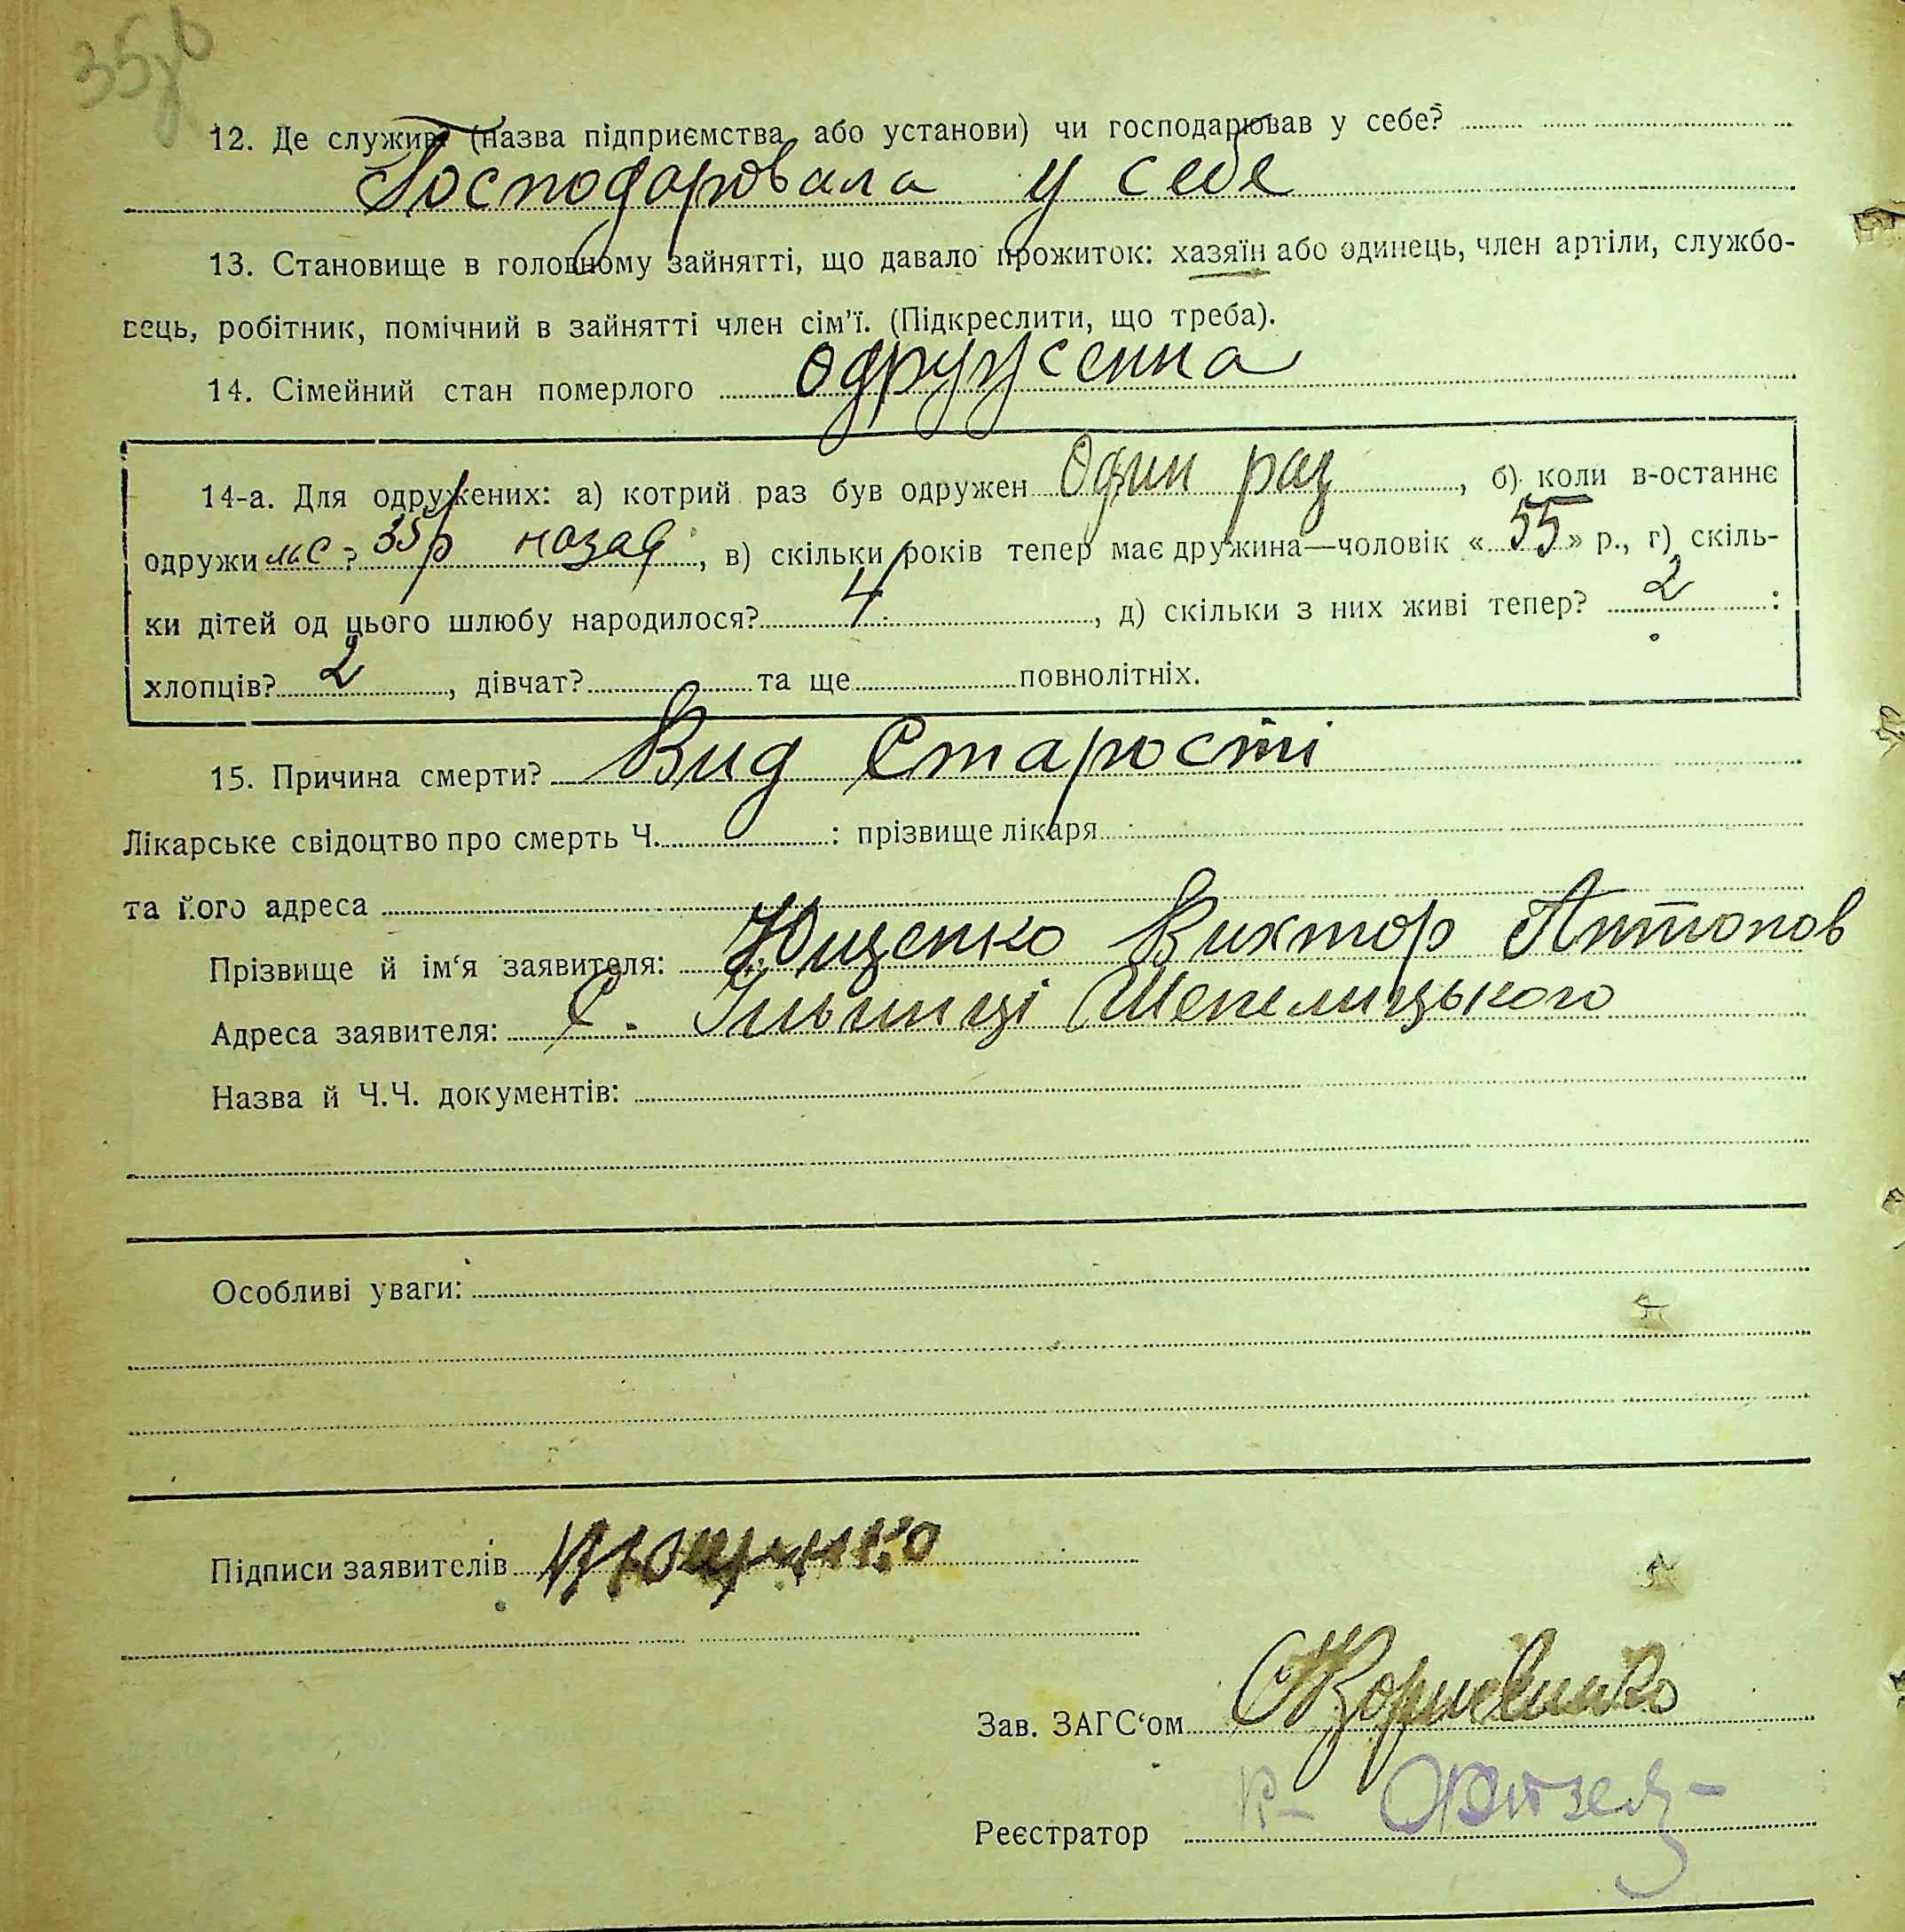 35
12. Де служив (назва підприємства або установи) чи господарював у себе?
Господаровала у себе
13. Становище в головному зайнятті, що давало прожиток: хазяїн або одинець, член артіли, службо-
вець, робітник, помічний в зайнятті член сім’ї. (Підкреслити, що треба).
14. Сімейний стан померлого одруженна
14-а. Для одружених: а) котрий раз був одружен Один раз, б) коли в-останнє
одружився? 35 р назад, в) скільки років тепер має дружина—чоловік «55» р., г) скіль-
ки дітей од цього шлюбу народилося? 4, д) скільки з них живі тепер? 2:
хлопців? 2, дівчат? та ще повнолітніх.
15. Причина смерти? Вид Старості
Лікарське свідоцтво про смерть Ч. : прізвище лікаря
та його адреса
Прізвище й ім‘я заявителя: Ющенко Виктор Антонов
Адреса заявителя: С. Ільинці Шепелицького
Назва й Ч.Ч. документів:
Особливі уваги:
Підписи заявителів Ющенко
Зав. ЗАГС‘ом
Реєстратор